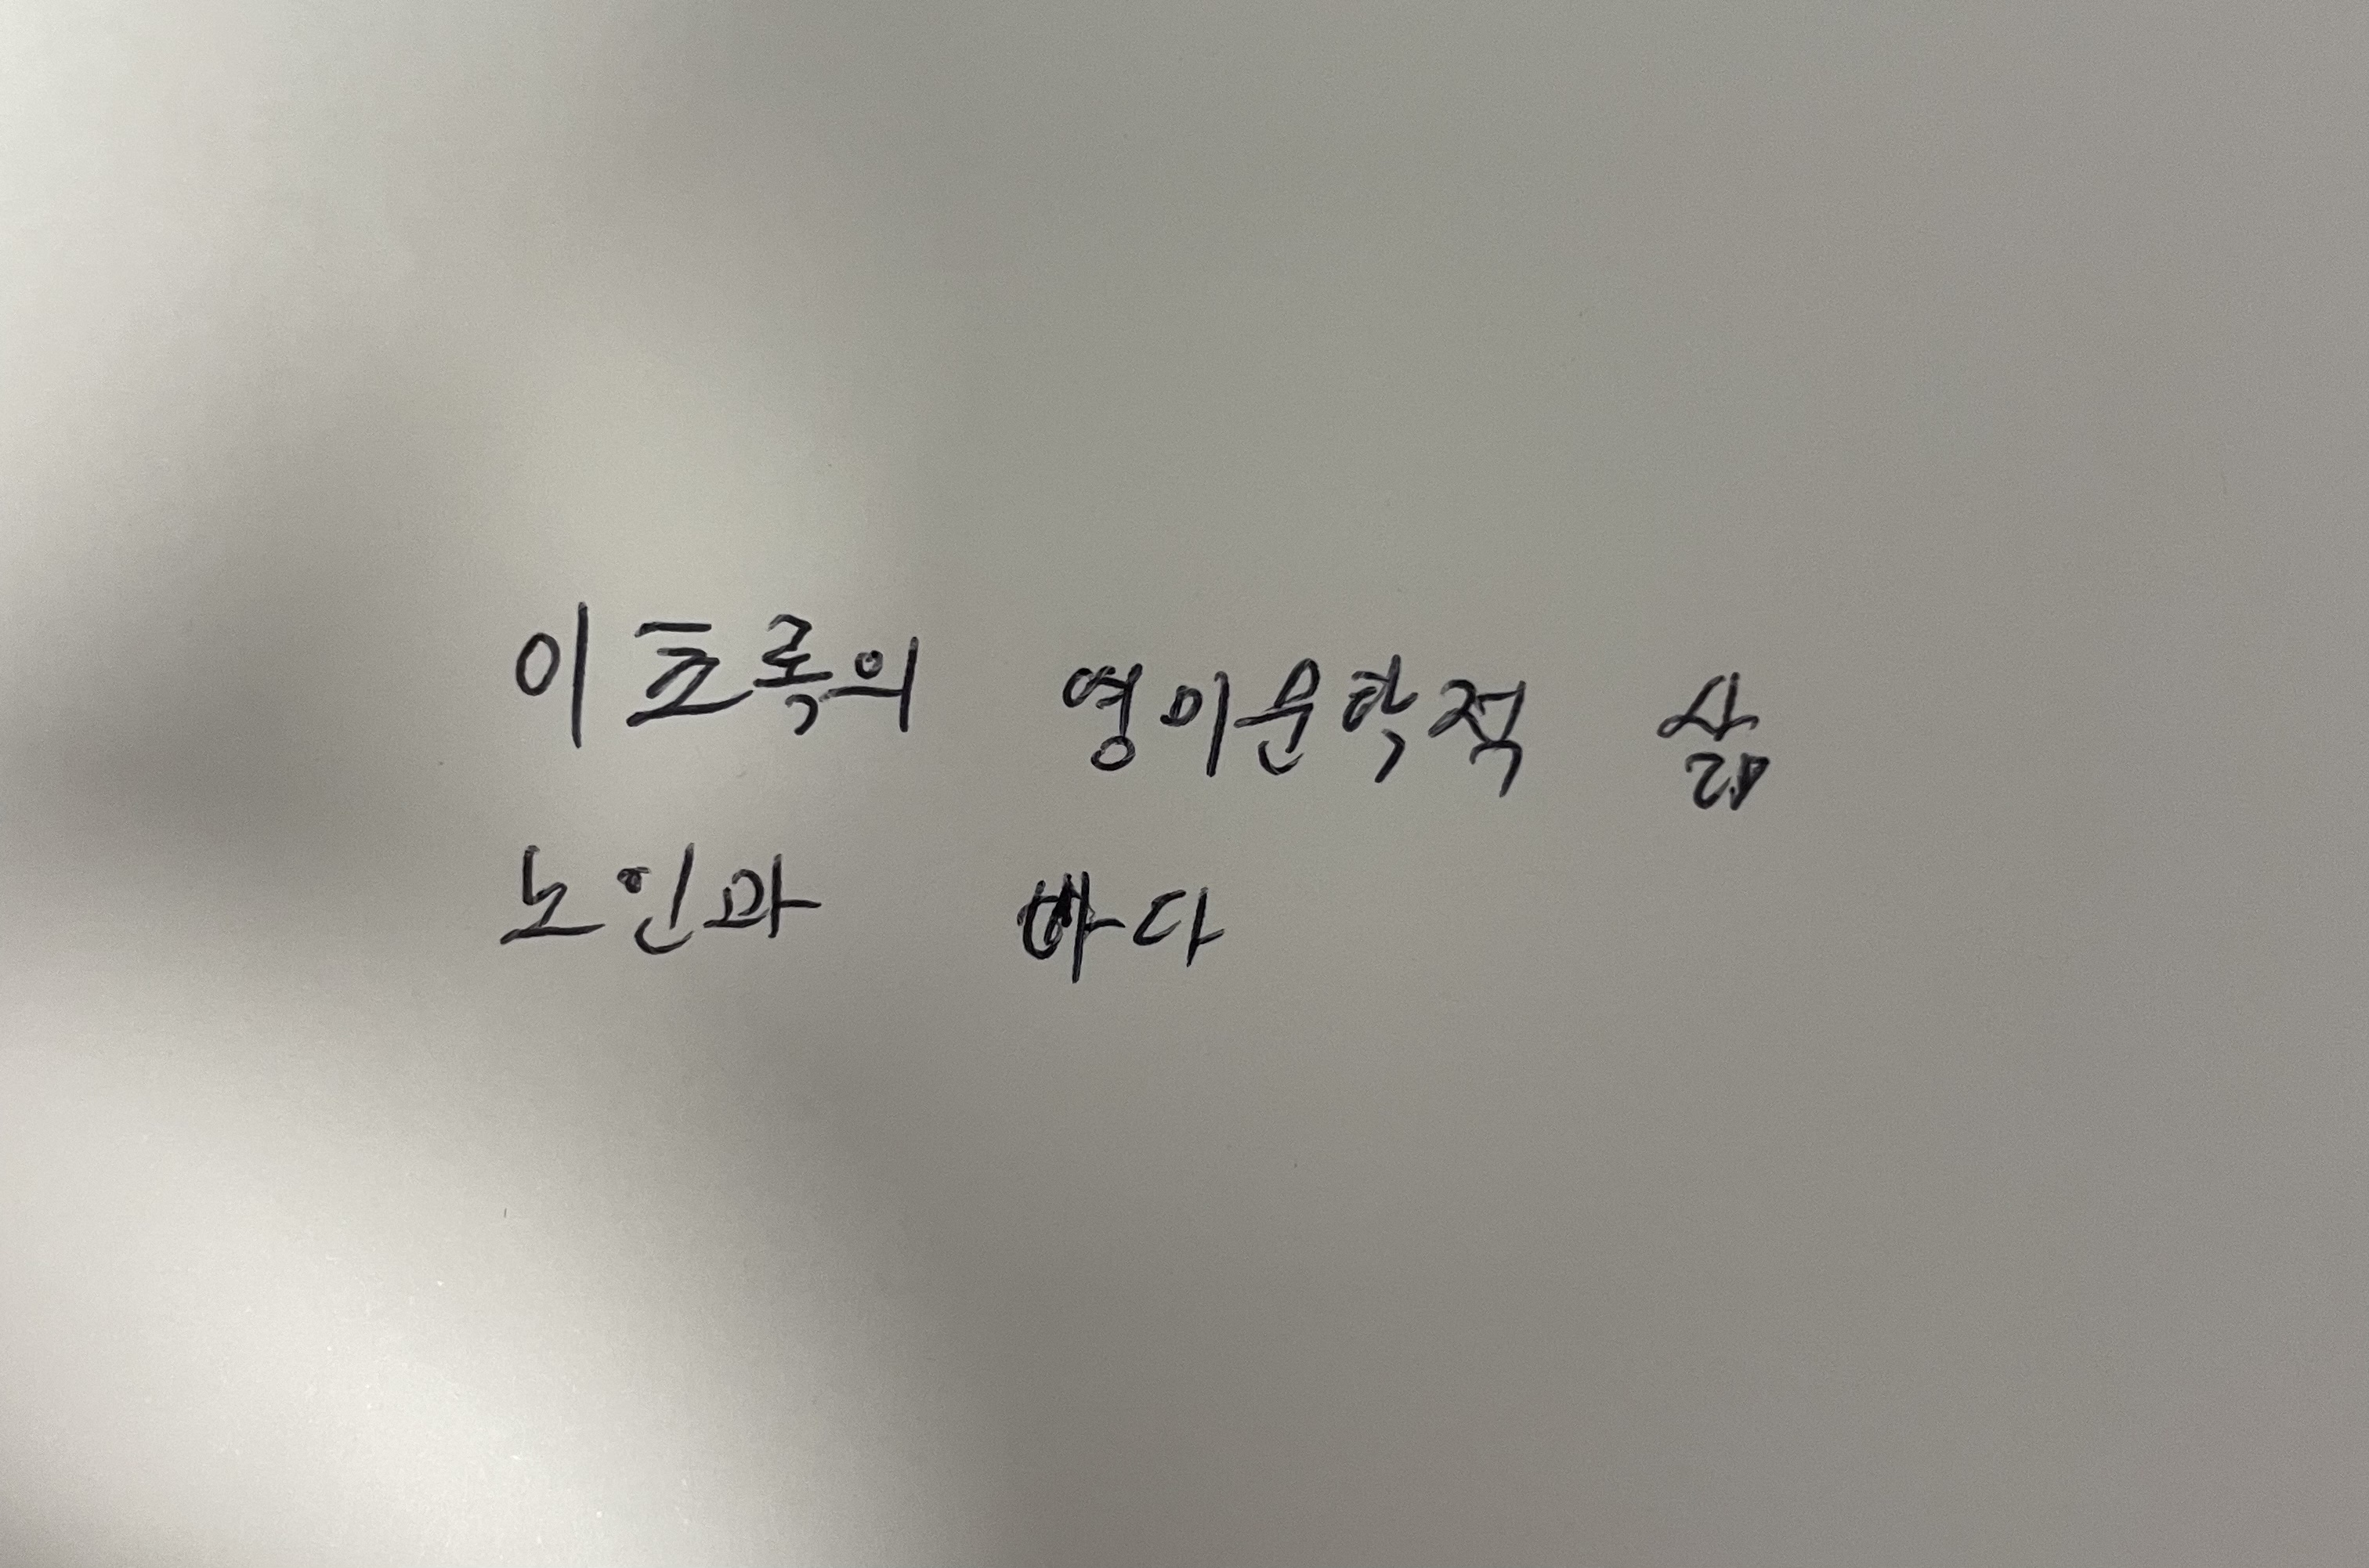 이초록의 영미문학적 삶
노인과 바다